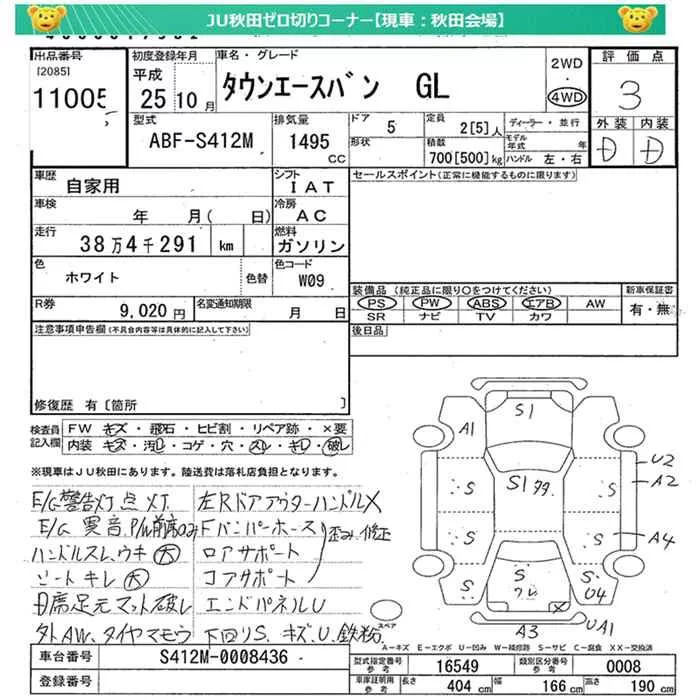 JU秋田ゼロ切りコーナー【現車：秋田会場】
出品番号 初度登録年月 車名・グレード 2WD 評価点
[2085]
11005 平成 25年10月 タウンエースバン GL ・ 4WD 3
型式 排気量 ドア 定員 ディーラー・並行 外装 内装
ABF-S412M 1495 CC 5 2[5]人 モデル年式 年 D D
形状 積載 700[500]kg ハンドル 左・右
車歴 自家用 シフト IAT セールスポイント(正常に機能するものに限ります)
車検 年 月( 日) 冷房 AC
走行 38万4千291 km 燃料 ガソリン
色 ホワイト 色替 色コード W09
装備品 (純正品に限り○をつけてください) 新車保証書
R券 9,020円 名変通知期限 月 日 PS PW ABS エアB AW 有・無
SR ナビ TV カワ
注意事項申告欄(不具合内容等は具体的に記入して下さい) 後日品
修復歴 有〔箇所 〕
検査員 FW キズ・飛石・ヒビ割・リペア跡・×要
記入欄 内装 キズ・汚れ・コゲ・穴・スレ・キレ・破レ
※現車はJU秋田にあります。陸送費は落札店負担となります。
E/G警告灯点灯 左Rドアアウターハンドル✕
E/G異音 P/W前席のみ Fバンパーホース 歪み修正
ハンドルスレ、ウキ(大) ロアサポート
シートキレ(大) コアサポート
日席足元マット破レ エンドパネルU
外AW、タイヤマモウ 下回りS、キズ、U、鉄粉
S1
A1
U2
A2
S
S1
S
S
S
A4
S
S
S
U4
A3
UA1
スペア
A－キズ E－エクボ U－凹み W－補修跡 S－サビ C－腐食 XX－交換済
車台番号 S412M-0008436 型式指定番号参考 16549 類別区分番号参考 0008
登録番号 車庫証明用参考 長さ 404 cm 幅 166 cm 高さ 190 cm